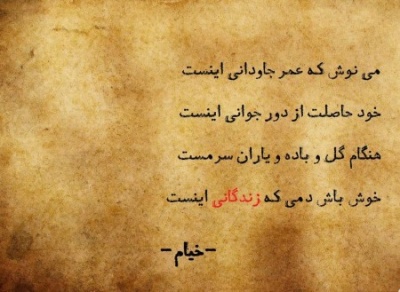 می نوش که عمر جاودانی اینست
خود حاصلت از دور جوانی اینست
هنگام گل و باده و یاران سرمست
خوش باش دمی که زندگانی اینست
-خیام-